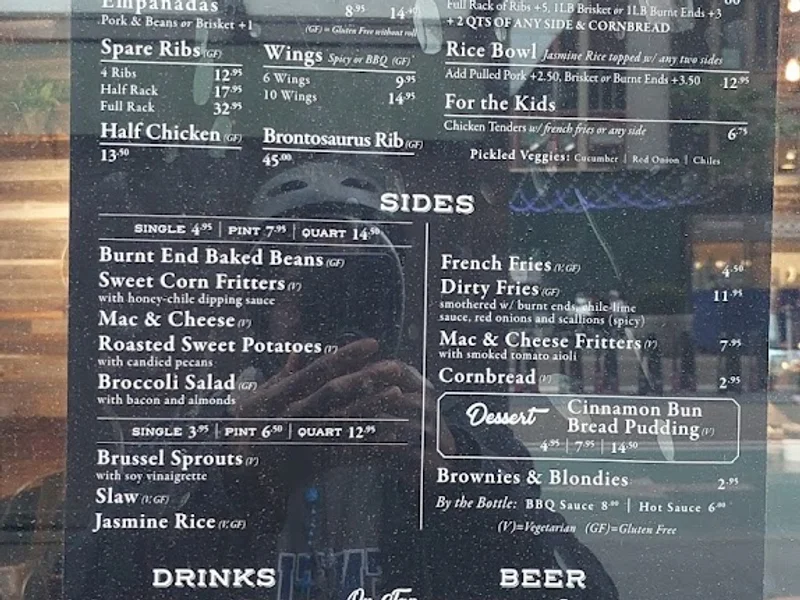 Empanadas 8.95 14.
Pork & Beans or Brisket +1
(GF) = Gluten Free without roll
Spare Ribs (GF)
4 Ribs 12.95
Half Rack 17.95
Full Rack 32.95
Wings Spicy or BBQ (GF)
6 Wings 9.95
10 Wings 14.95
Half Chicken (GF)
13.50
Brontosaurus Rib (GF)
45.00
Full Rack of Ribs +5, 1LB Brisket or 1LB Burnt Ends +3
+ 2 QTS OF ANY SIDE & CORNBREAD
Rice Bowl Jasmine Rice topped w/ any two sides
Add Pulled Pork +2.50, Brisket or Burnt Ends +3.50 12.95
For the Kids
Chicken Tenders w/ french fries or any side 6.75
Pickled Veggies: Cucumber | Red Onion | Chiles
SIDES
SINGLE 4.95 | PINT 7.95 | QUART 14.50
Burnt End Baked Beans (GF)
Sweet Corn Fritters (V)
with honey-chile dipping sauce
Mac & Cheese (V)
Roasted Sweet Potatoes (V)
with candied pecans
Broccoli Salad (GF)
with bacon and almonds
SINGLE 3.95 | PINT 6.50 | QUART 12.95
Brussel Sprouts (V)
with soy vinaigrette
Slaw (V, GF)
Jasmine Rice (V, GF)
French Fries (V, GF) 4.50
Dirty Fries (GF) 11.95
smothered w/ burnt ends, chile-lime
sauce, red onions and scallions (spicy)
Mac & Cheese Fritters (V) 7.95
with smoked tomato aioli
Cornbread (V) 2.95
Dessert Cinnamon Bun
Bread Pudding (V)
4.95 | 7.95 | 14.50
Brownies & Blondies 2.95
By the Bottle: BBQ Sauce 8.00 | Hot Sauce 6.00
(V)=Vegetarian (GF)=Gluten Free
DRINKS
On Tap
BEER